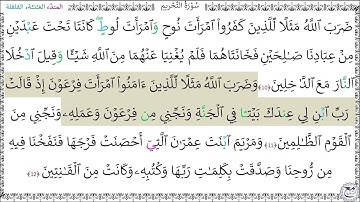 سُورَةُ التَّحْرِيمِ
ضَرَبَ اللَّهُ مَثَلًا لِّلَّذِينَ كَفَرُوا امْرَأَتَ نُوحٍ وَامْرَأَتَ لُوطٍ كَانَتَا تَحْتَ عَبْدَيْنِ
مِنْ عِبَادِنَا صَـٰلِحَيْنِ فَخَانَتَاهُمَا فَلَمْ يُغْنِيَا عَنْهُمَا مِنَ اللَّهِ شَيْـًٔا وَقِيلَ ادْخُلَا
النَّارَ مَعَ الدَّٰخِلِينَ (10) وَضَرَبَ اللَّهُ مَثَلًا لِّلَّذِينَ ءَامَنُوا امْرَأَتَ فِرْعَوْنَ إِذْ قَالَتْ
رَبِّ ابْنِ لِي عِندَكَ بَيْتًا فِي الْجَنَّةِ وَنَجِّنِي مِن فِرْعَوْنَ وَعَمَلِهِۦ وَنَجِّنِي مِنَ
الْقَوْمِ الظَّـٰلِمِينَ (11) وَمَرْيَمَ ابْنَتَ عِمْرَٰنَ الَّتِي أَحْصَنَتْ فَرْجَهَا فَنَفَخْنَا فِيهِ
مِن رُّوحِنَا وَصَدَّقَتْ بِكَلِمَـٰتِ رَبِّهَا وَكُتُبِهِۦ وَكَانَتْ مِنَ الْقَـٰنِتِينَ (12)